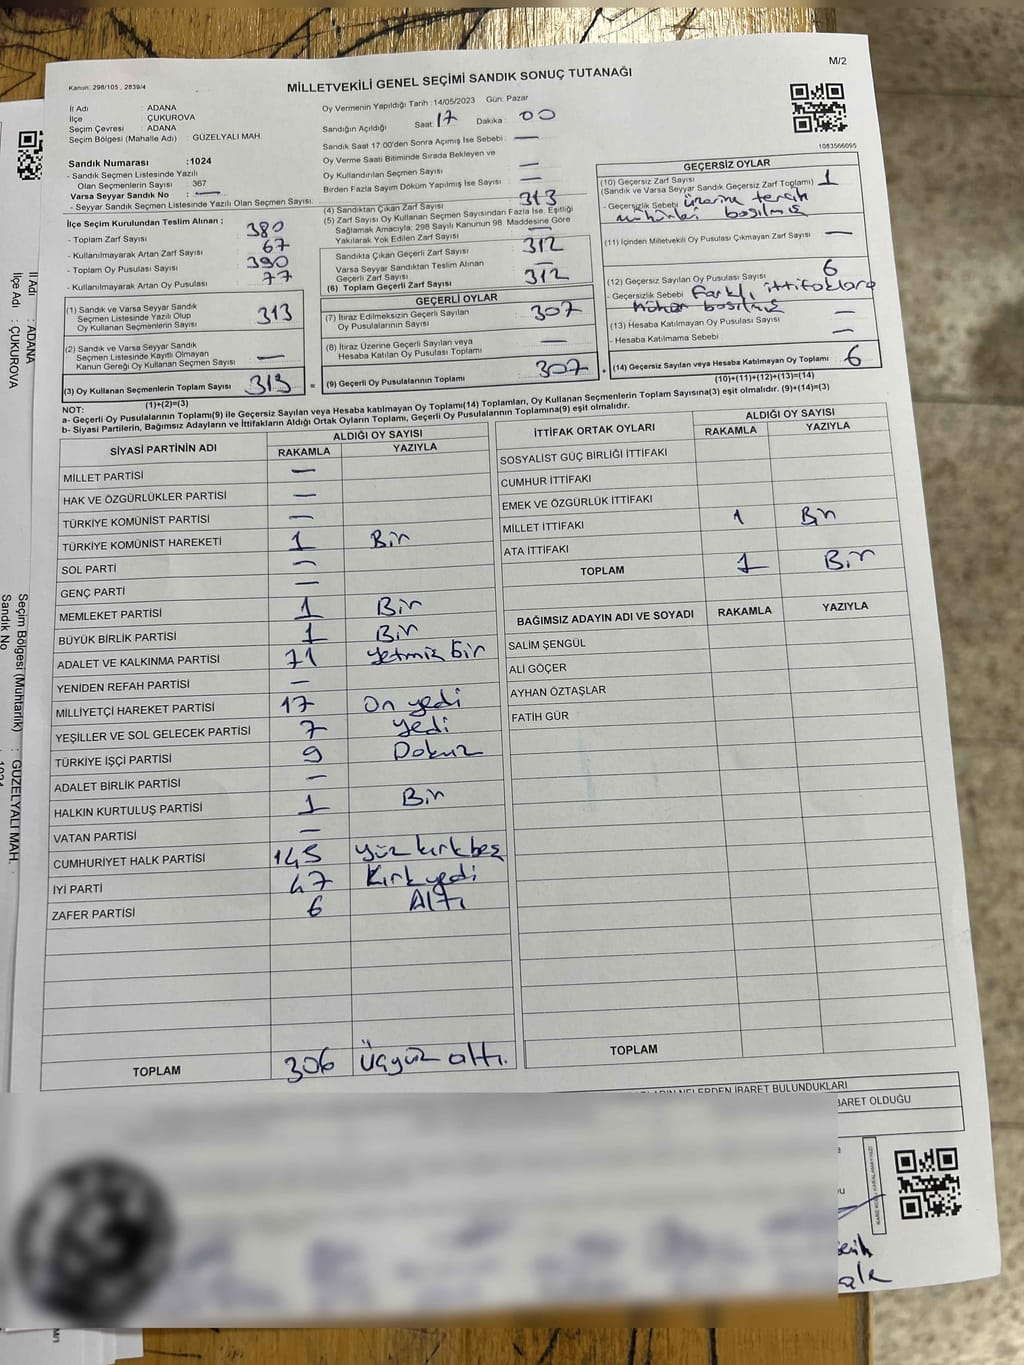 M/2
Kanun: 298/105 , 2839/4
MİLLETVEKİLİ GENEL SEÇİMİ SANDIK SONUÇ TUTANAĞI
İl Adı : ADANA
İlçe : ÇUKUROVA
Seçim Çevresi : ADANA
Seçim Bölgesi (Mahalle Adı) : GÜZELYALI MAH.
Sandık Numarası : 1024
- Sandık Seçmen Listesinde Yazılı
Olan Seçmenlerin Sayısı : 367
Varsa Seyyar Sandık No : —
- Seyyar Sandık Seçmen Listesinde Yazılı Olan Seçmen Sayısı:
Oy Vermenin Yapıldığı Tarih : 14/05/2023 Gün: Pazar
Sandığın Açıldığı Saat 17 Dakika : 00
Sandık Saat 17.00'den Sonra Açılmış İse Sebebi : —
Oy Verme Saati Bitiminde Sırada Bekleyen ve
Oy Kullandırılan Seçmen Sayısı : —
Birden Fazla Sayım Döküm Yapılmış İse Sayısı : —
1083566095
İlçe Seçim Kurulundan Teslim Alınan :
- Toplam Zarf Sayısı 380
- Kullanılmayarak Artan Zarf Sayısı 67
- Toplam Oy Pusulası Sayısı 390
- Kullanılmayarak Artan Oy Pusulası 77
(1) Sandık ve Varsa Seyyar Sandık
Seçmen Listesinde Yazılı Olup
Oy Kullanan Seçmenlerin Sayısı 313
(2) Sandık ve Varsa Seyyar Sandık
Seçmen Listesinde Kayıtlı Olmayan
Kanun Gereği Oy Kullanan Seçmen Sayısı —
(3) Oy Kullanan Seçmenlerin Toplam Sayısı 313 =
(1)+(2)=(3)
(4) Sandıktan Çıkan Zarf Sayısı 313
(5) Zarf Sayısı Oy Kullanan Seçmen Sayısından Fazla İse, Eşitliği
Sağlamak Amacıyla; 298 Sayılı Kanunun 98. Maddesine Göre
Yakılarak Yok Edilen Zarf Sayısı —
Sandıkta Çıkan Geçerli Zarf Sayısı 312
Varsa Seyyar Sandıktan Teslim Alınan
Geçerli Zarf Sayısı —
(6) Toplam Geçerli Zarf Sayısı 312
GEÇERLİ OYLAR
(7) İtiraz Edilmeksizin Geçerli Sayılan
Oy Pusulalarının Sayısı 307
(8) İtiraz Üzerine Geçerli Sayılan veya
Hesaba Katılan Oy Pusulası Toplamı —
(9) Geçerli Oy Pusulalarının Toplamı 307 +
GEÇERSİZ OYLAR
(10) Geçersiz Zarf Sayısı 1
(Sandık ve Varsa Seyyar Sandık Geçersiz Zarf Toplamı)
- Geçersizlik Sebebi üzerine tercih
mühürleri basılmış
(11) İçinden Milletvekili Oy Pusulası Çıkmayan Zarf Sayısı —
(12) Geçersiz Sayılan Oy Pusulası Sayısı 6
- Geçersizlik Sebebi Farklı ittifaklara
mühür basılmış
(13) Hesaba Katılmayan Oy Pusulası Sayısı —
- Hesaba Katılmama Sebebi : —
(14) Geçersiz Sayılan veya Hesaba Katılmayan Oy Toplamı 6
(10)+(11)+(12)+(13)=(14)
NOT:
a- Geçerli Oy Pusulalarının Toplamı(9) ile Geçersiz Sayılan veya Hesaba katılmayan Oy Toplamı(14) Toplamları, Oy Kullanan Seçmenlerin Toplam Sayısına(3) eşit olmalıdır. (9)+(14)=(3)
b- Siyasi Partilerin, Bağımsız Adayların ve İttifakların Aldığı Ortak Oyların Toplamı, Geçerli Oy Pusulalarının Toplamına(9) eşit olmalıdır.
SİYASİ PARTİNİN ADI ALDIĞI OY SAYISI
RAKAMLA YAZIYLA
MİLLET PARTİSİ —
HAK VE ÖZGÜRLÜKLER PARTİSİ —
TÜRKİYE KOMÜNİST PARTİSİ —
TÜRKİYE KOMÜNİST HAREKETİ 1 Bir
SOL PARTİ —
GENÇ PARTİ —
MEMLEKET PARTİSİ 1 Bir
BÜYÜK BİRLİK PARTİSİ 1 Bir
ADALET VE KALKINMA PARTİSİ 71 yetmiş bir
YENİDEN REFAH PARTİSİ —
MİLLİYETÇİ HAREKET PARTİSİ 17 On yedi
YEŞİLLER VE SOL GELECEK PARTİSİ 7 yedi
TÜRKİYE İŞÇİ PARTİSİ 9 Dokuz
ADALET BİRLİK PARTİSİ —
HALKIN KURTULUŞ PARTİSİ 1 Bir
VATAN PARTİSİ —
CUMHURİYET HALK PARTİSİ 145 yüz kırk beş
İYİ PARTİ 47 Kırk yedi
ZAFER PARTİSİ 6 Altı
TOPLAM 306 Üçyüz altı.
İTTİFAK ORTAK OYLARI ALDIĞI OY SAYISI
RAKAMLA YAZIYLA
SOSYALİST GÜÇ BİRLİĞİ İTTİFAKI
CUMHUR İTTİFAKI
EMEK VE ÖZGÜRLÜK İTTİFAKI
MİLLET İTTİFAKI 1 Bir
ATA İTTİFAKI
TOPLAM 1 Bir
BAĞIMSIZ ADAYIN ADI VE SOYADI RAKAMLA YAZIYLA
SALİM ŞENGÜL
ALİ GÖÇER
AYHAN ÖZTAŞLAR
FATİH GÜR
TOPLAM
NELERDEN İBARET BULUNDUKLARI
BARET OLDUĞU
İl Adı : ADANA
İlçe Adı : ÇUKUROVA
Seçim Bölgesi (Muhtarlık) : GÜZELYALI MAH.
Sandık No : 1024
M/1